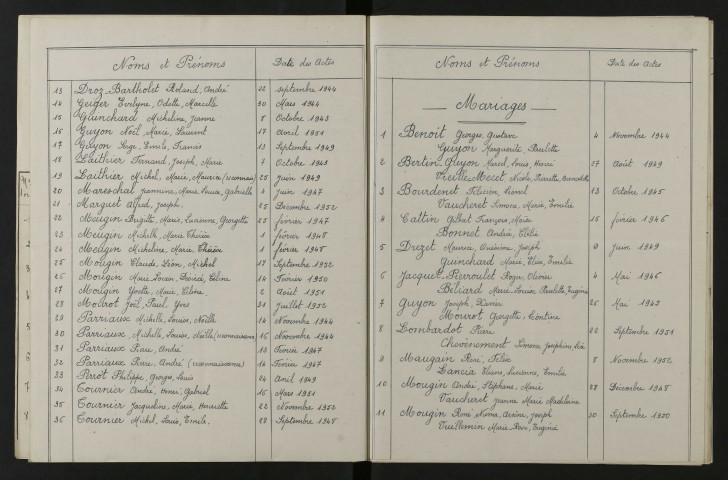 Noms et Prénoms Date des Actes
13 Droz-Bartholet Roland, André 22 septembre 1944
14 Geiger Evelyne, Odette, Marcelle 30 Mars 1944
15 Guinchard Micheline, Jeanne 8 Octobre 1943
16 Guyon Noël, Marie, Laurent 17 Avril 1951
17 Guyon Serge, Emile, Francis 13 Septembre 1949
18 Laithier Fernand, Joseph, Marie 7 Octobre 1943
19 Laithier Michel, Marie, Maurice (reconnais) 25 Juin 1949
20 Mareschal Jeannine, Marie, Louise, Gabrielle 4 Juin 1947
21 Marguet Alfred, Joseph 25 Décembre 1952
22 Mougin Brigitte, Marie, Lucienne, Georgette 25 février 1947
23 Mougin Michelle, Marie Thérèse 1 février 1948
24 Mougin Micheline, Marie, Thérèse 1 février 1948
25 Mougin Claude, Léon, Michel 17 Septembre 1952
26 Mougin Marie, Céline 14 Février 1950
27 Mougin Yvette, Marie, Céline 2 Août 1951
28 Mourot Joël, Paul, Yves 31 Juillet 1952
29 Parriaux Michelle, Louise, Noëlle 14 Novembre 1944
30 Parriaux Michelle, Louise, Noëlle (reconnaissance) 16 Novembre 1944
31 Parriaux Pierre, André 13 Février 1947
32 Parriaux Pierre, André (reconnaissance) 14 Février 1947
33 Perrot Philippe, Georges, Louis 24 Avril 1949
34 Tournier André, Henri, Gabriel 15 Mars 1951
35 Tournier Jacqueline, Marie, Henriette 22 Novembre 1952
36 Tournier Michel, Louis, Emile 28 Septembre 1948
Noms et Prénoms Date des Actes
Mariages
1 Benoit Georges, Gustave 4 Novembre 1944
Guyon Marguerite, Paulette
2 Bertin-Guyon Marcel, Louis, Henri 27 Août 1949
Vieille-Mecet Nicole, Pierrette, Bernadette
3 Bourdenet Félicien, Lionel 13 Octobre 1945
Vaucheret Simone, Marie, Emilia
4 Cattin Albert François, Marie 15 février 1946
Bonnet Andrée, Clélie
5 Drezet Maurice, Joseph Juin 1949
Guinchard Marie, Elise, Emilia
6 Jacquet-Pierroulet Roger, Olivier 4 Mai 1946
Biliard Marie-Louise, Paulette, Eugénie
7 Guyon Joseph, Xavier 26 Mai 1943
Mourot Georgette, Contine
8 Lombardot Pierre 22 Septembre 1951
Chevènement Simone, Joséphine
9 Maugain René, Félix 8 Novembre 1952
Lancia Eliane, Lucienne, Emilia
10 Mougin André, Stéphane, Marie 28 Décembre 1948
Vaucheret Jeanne Marie Madeleine
11 Mougin René Arsène, Joseph 30 Septembre 1950
Vuillemin Marie-Rose, Eugénie